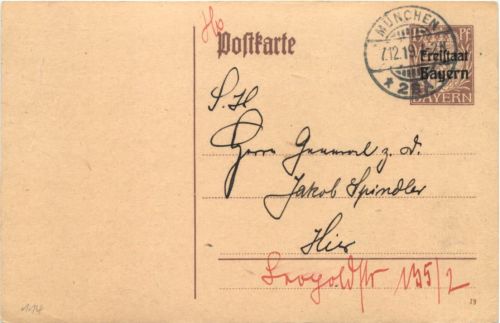 Ho
Postkarte
MÜNCHEN
7.12.19
* 2
Pf
Freistaat
Bayern
BAYERN
S. H.
Herrn General z. D.
Jakob Spindler
Hier
Leopoldstr 135/2
19